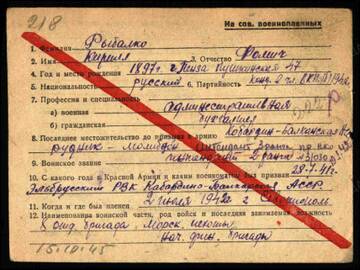 218
На сов. военнопленных
1. Фамилия Рыбалко
2. Имя Кирилл 3. Отчество Фомич
4. Год и место рождения 1897 г. Пенза Пушкинская 47
5. Национальность русский 6. Партийность канд. с
7. Профессия и специальность
а) военная административная
б) гражданская бухгалтер
8. Последнее местожительство до призыва в армию Кабардино-Балкарская
рудник
9. Воинское звание
10. С какого года в Красной Армии и каким военкоматом был призван 28-7-41 г.
Эльбрусским РВК Кабардино-Балкарск. АССР
11. Когда и где был пленен 2 июля 1942 г. Севастополь
12. Наименование воинской части, род войск и последняя занимаемая должность
8 отд. бригада Морск. пехоты
Нач. фин. бригады
15.10.45